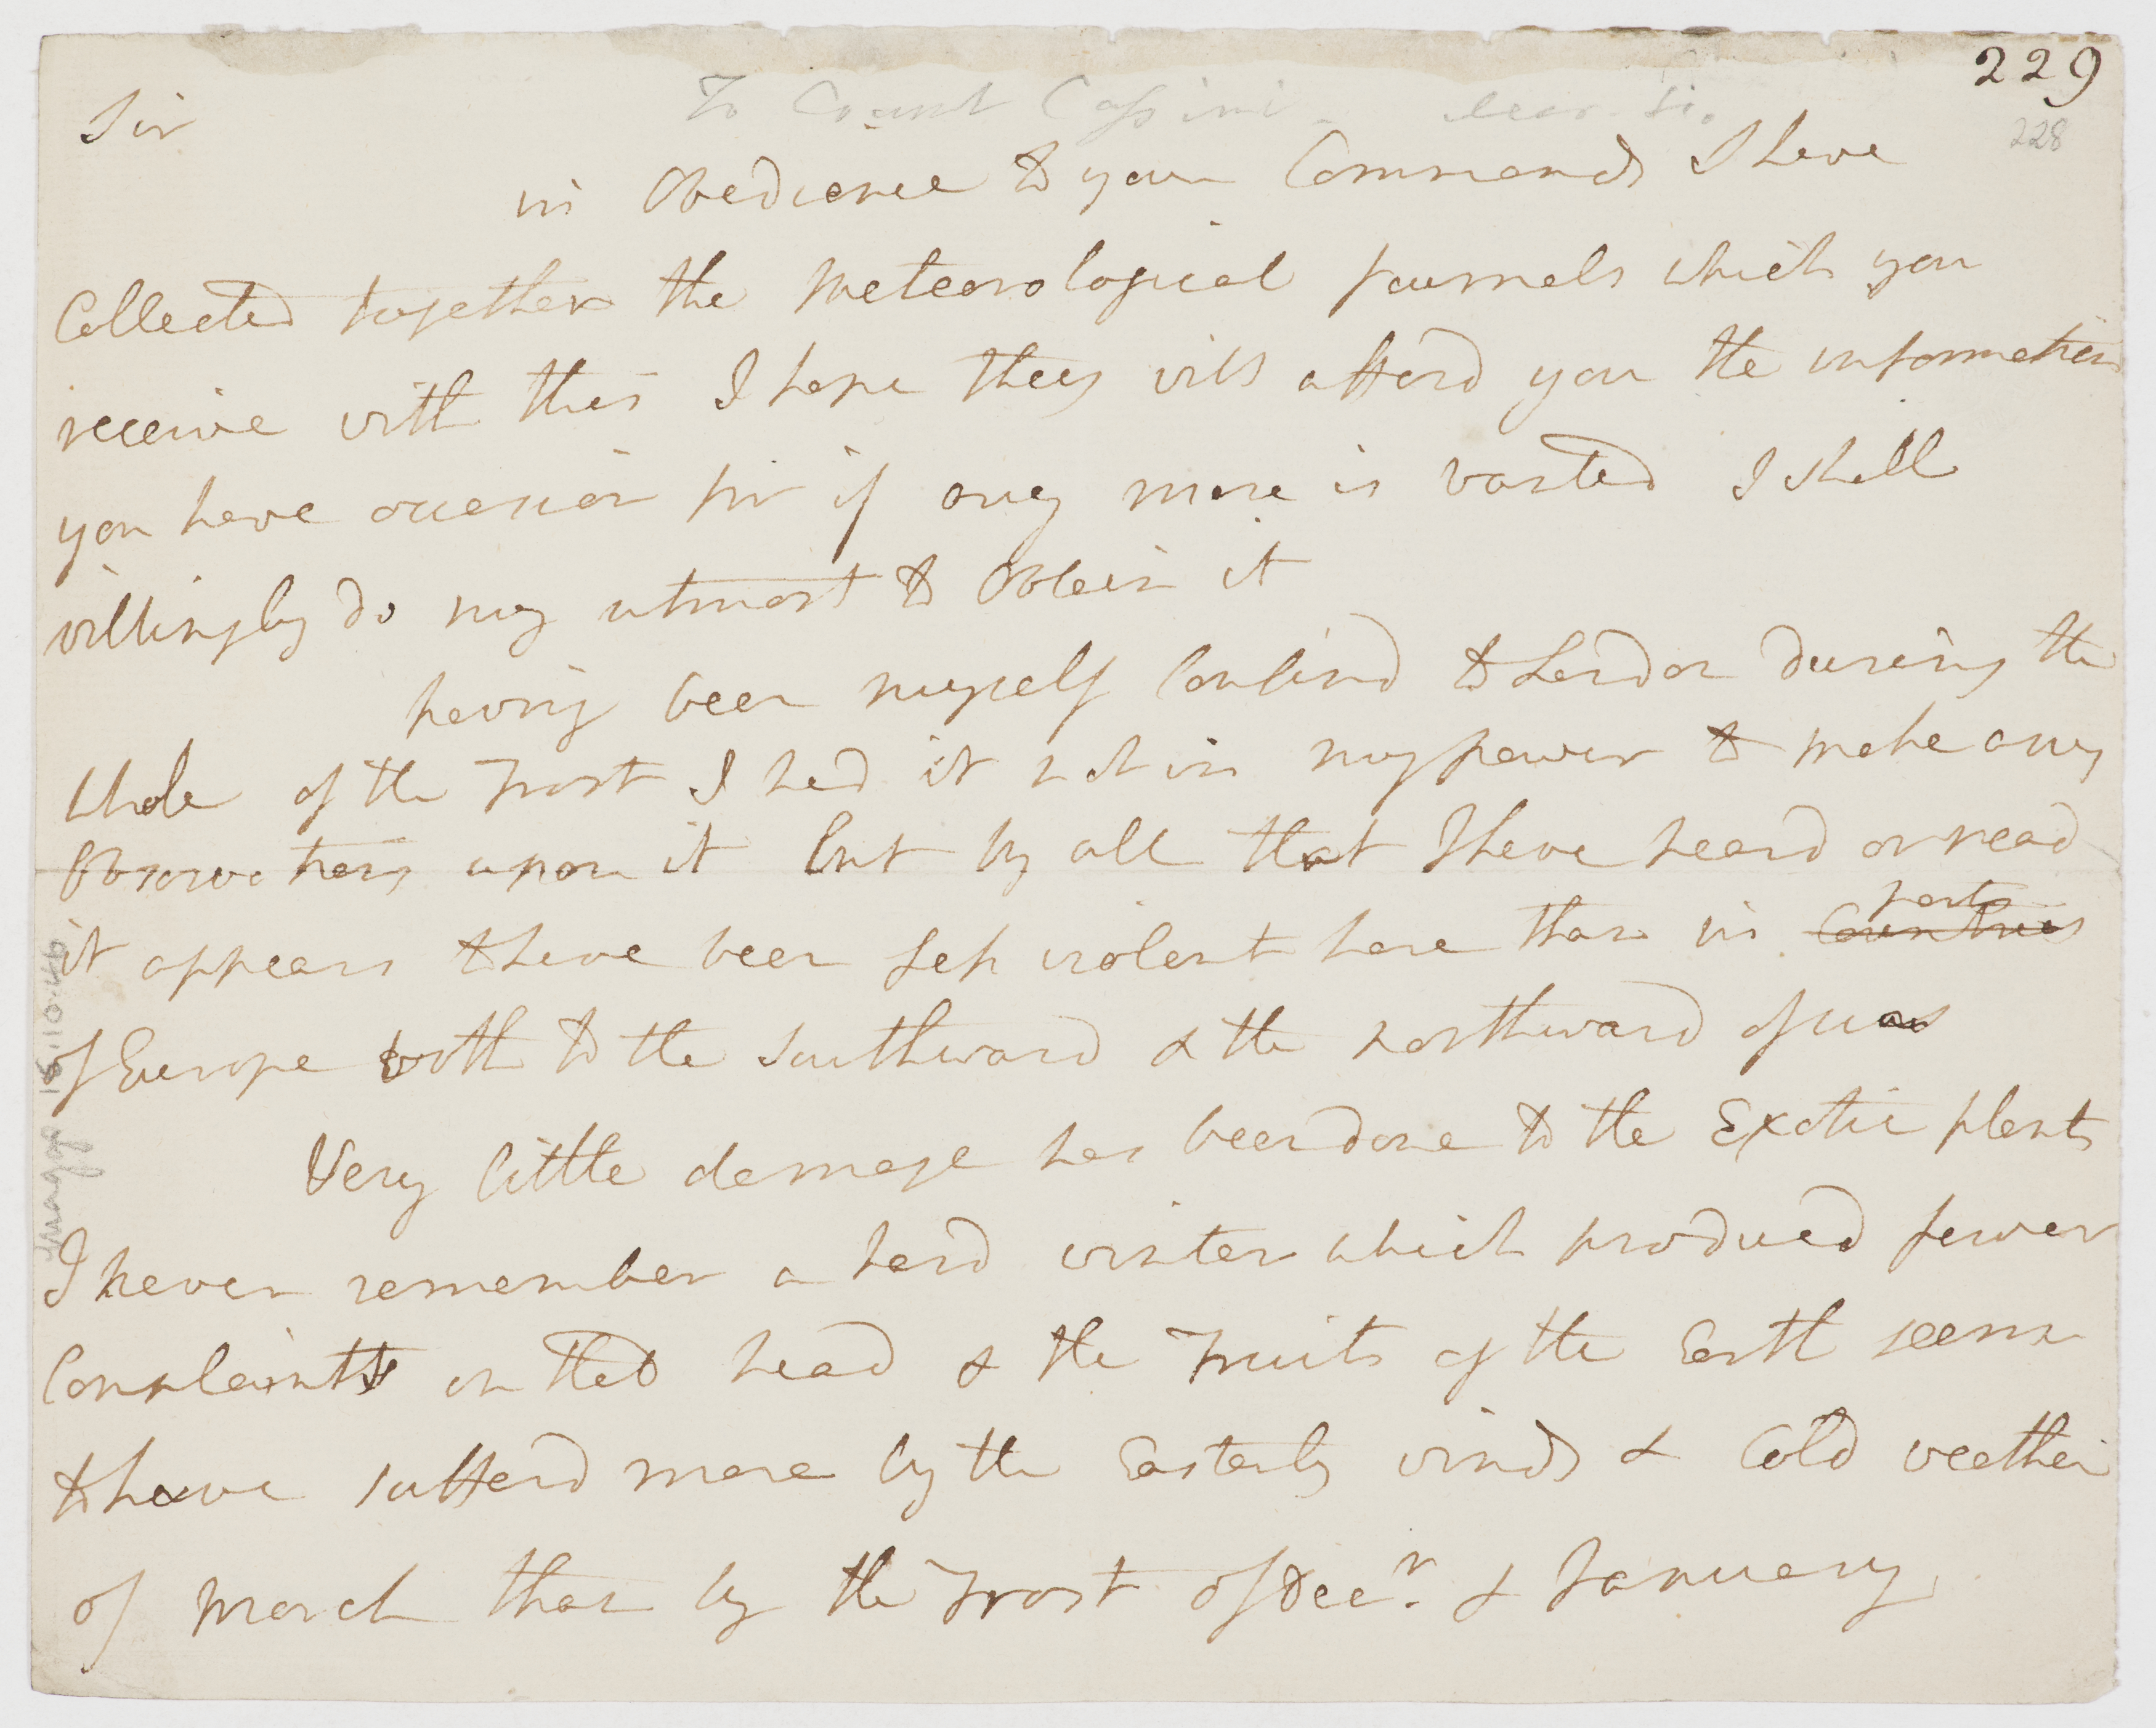 229
To Count Cassini - dear Sir.
228
Sir
in Obedience to your Commands I have
Collected together the meteorological journals which you
receive with this I hope they will afford you the information
you have occasion for if any more is wanted I shall
willingly do my utmost to Obtain it
having been myself Confind to London during the
whole of the Frost I had it not in my power to make any
Observations upon it but by all that I have heard or read
it appears to have been less violent here than in Countries parts
of Europe both to the Southward & the northward of us
Very little damage has been done to the Exotic plants
I never remember a hard winter which produced fewer
Complaints on that head & the Fruits of the Earth seems
to have sufferd more by the Easterly winds & Cold weather
of March than by the Frost of Decr. & January
Image 18.10.46